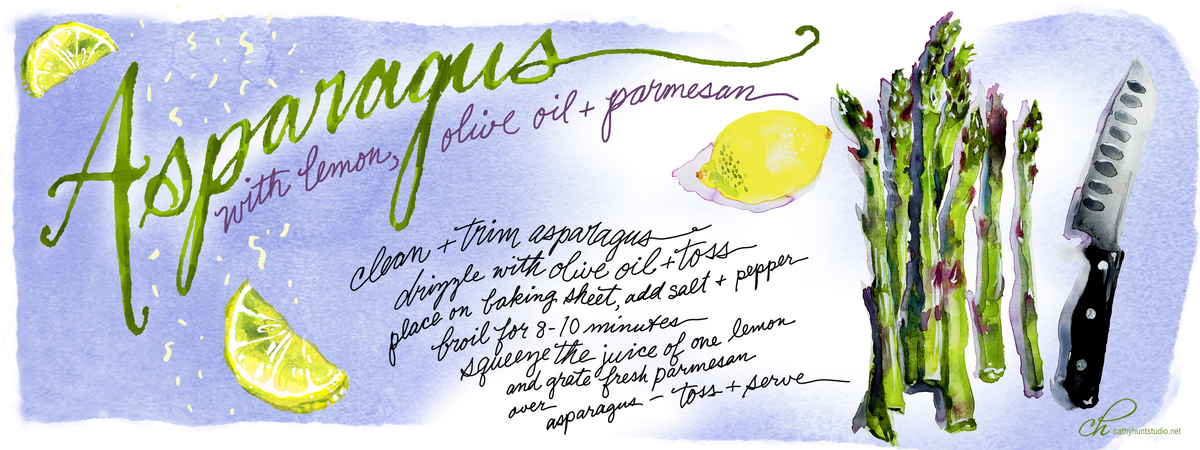 Asparagus
with lemon, olive oil + parmesan
clean + trim asparagus
drizzle with olive oil + toss
place on baking sheet, add salt + pepper
broil for 8-10 minutes
squeeze the juice of one lemon
and grate fresh parmesan
over
asparagus - toss + serve
ch cathyhuntstudio.net